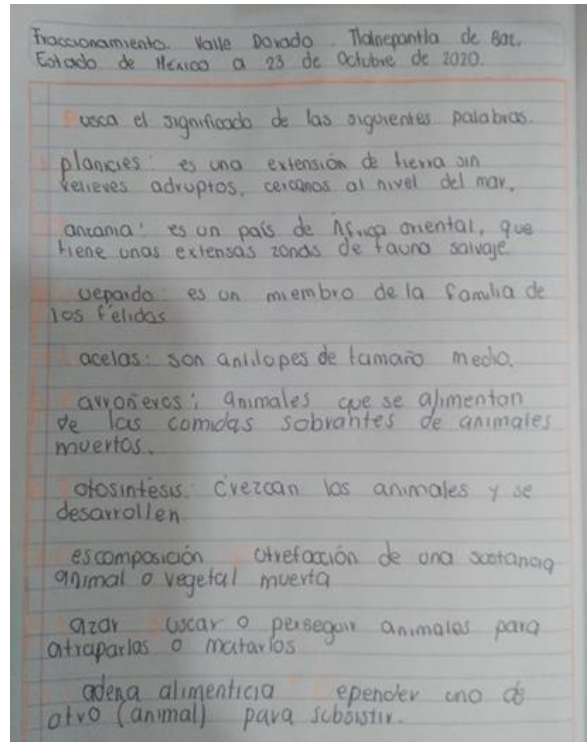 Fraccionamiento. Valle Dorado. Tlalnepantla de Baz.
Estado de México a 23 de Octubre de 2020.
Busca el significado de las siguientes palabras.
planicies: es una extensión de tierra sin
relieves adruptos, cercanos al nivel del mar.
anzania: es un país de África oriental, que
tiene unas extensas zonas de fauna salvaje.
uepardo: es un miembro de la familia de
los félidos
acelas: son antilopes de tamaño medio.
arroñeros: animales que se alimentan
de las comidas sobrantes de animales
muertos.
otosíntesis. Crezcan los animales y se
desarrollen
escomposición utrefacción de una sustancia
animal o vegetal muerta
azar uscar o perseguir animales para
atraparlas o matarlos
adena alimenticia epender uno de
otro (animal) para subsistir.